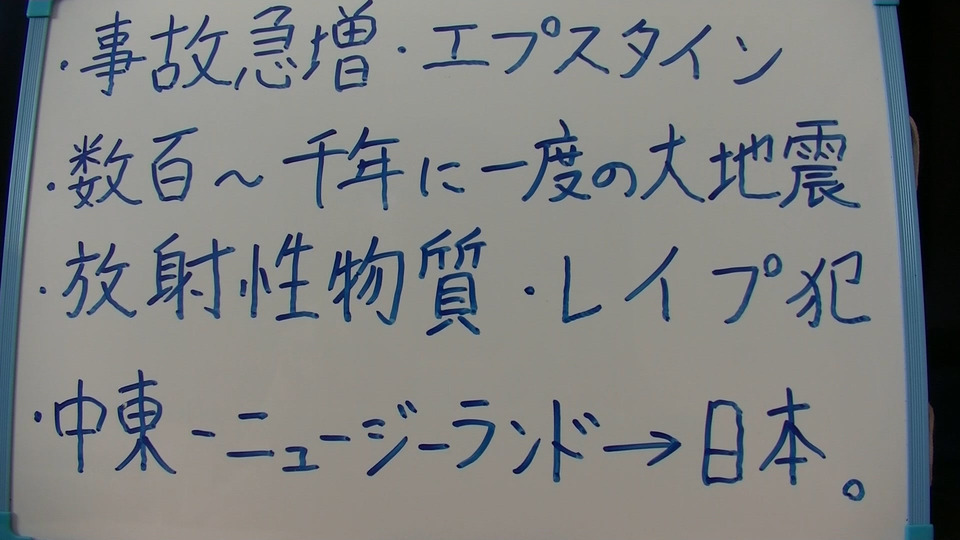 ・事故急増・エプスタイン
・数百～千年に一度の大地震
・放射性物質・レイプ犯
・中東-ニュージーランド→日本。